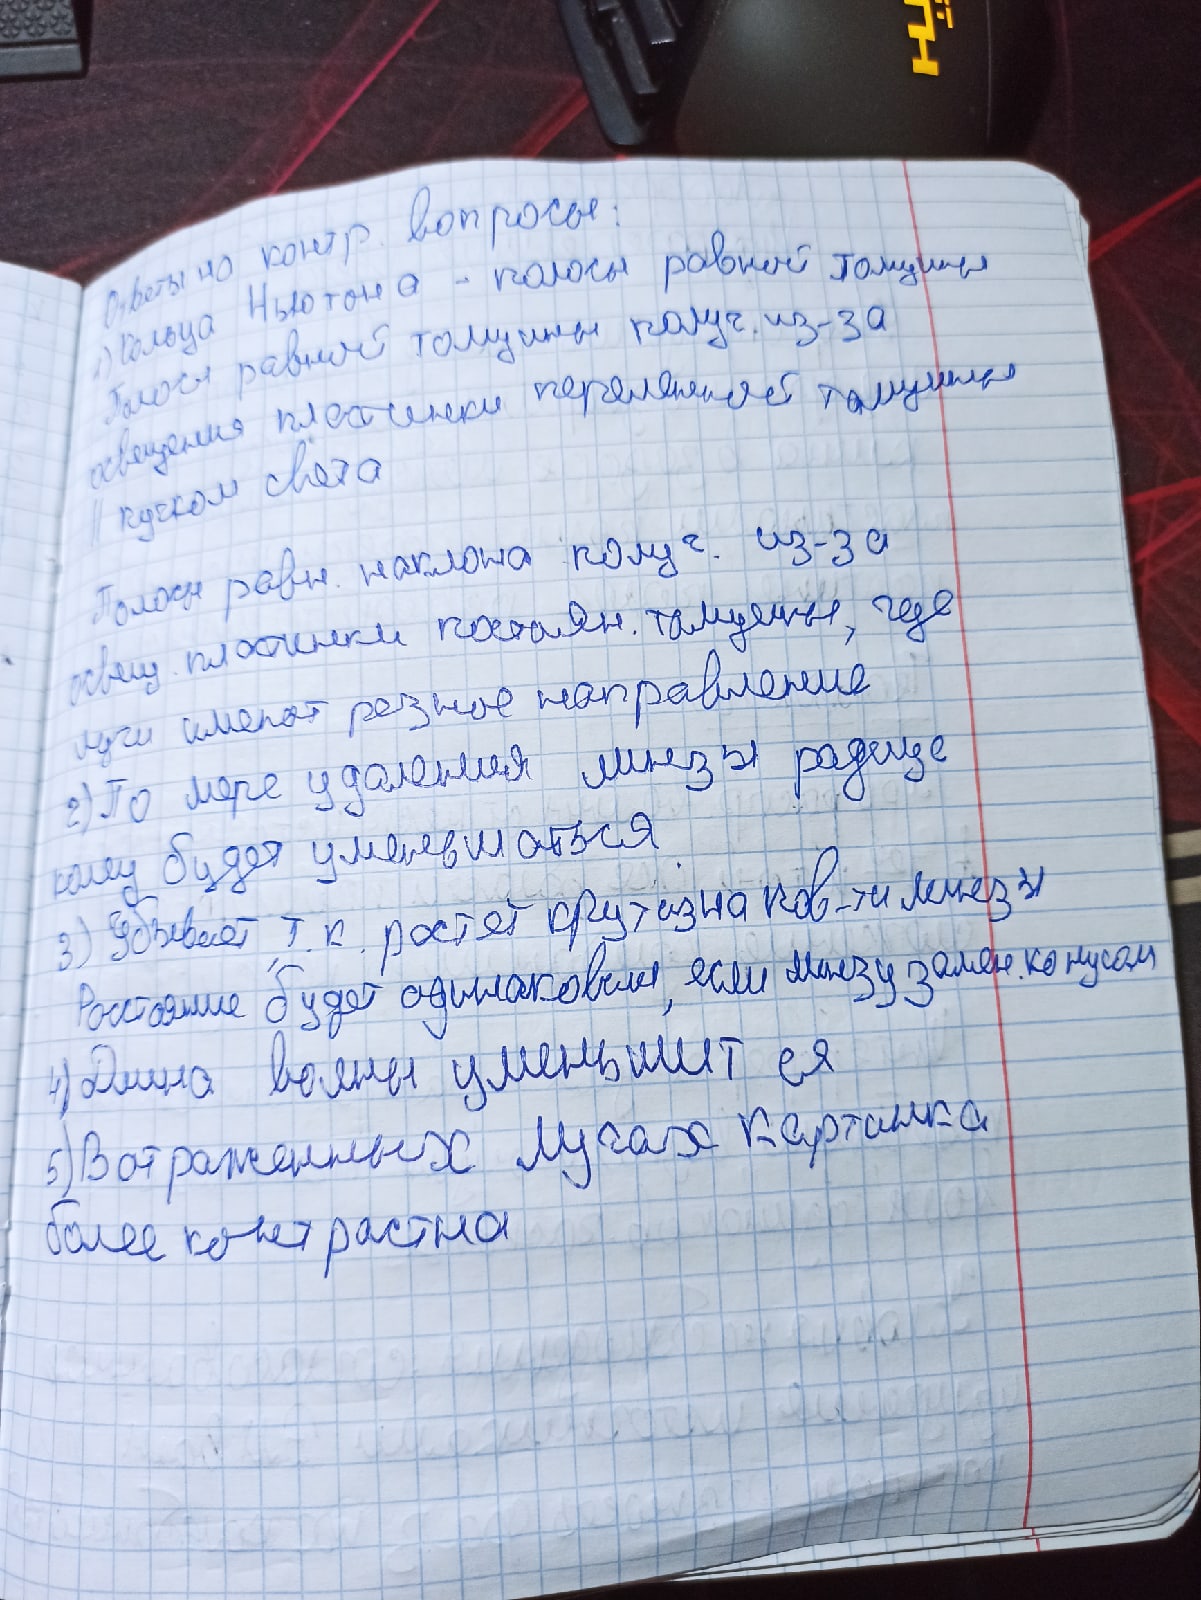 ПН
ЕТ
Ответы на контр. вопросы:
1) Кольца Ньютона - полосы равной толщины
Полосы равной толщины получ. из-за
освещения пластинки переменной толщины
|| пучком света
Полосы равн. наклона получ. из-за
освещ. пластинки постоян. толщины, где
лучи имеют разное направление
2) По мере удаления линзы радиус
колец будет уменьшаться
3) Убывает, т.к. растет крутизна пов-ти линзы
Расстояние будет одинаковым, если линзу замен. конусом
4) Длина волны уменьшится
5) В отраженных лучах картинка
более контрастна